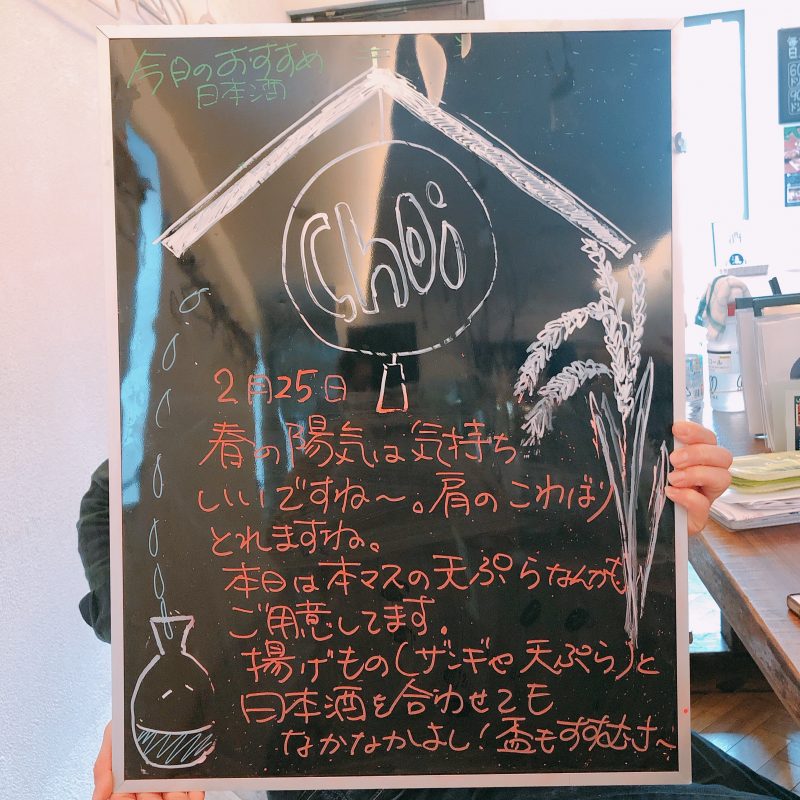 今日のおすすめ
日本酒
Choi
2月25日
春の陽気は気持ち
いいですね〜。肩のこわばり
とれますね。
本日は本マスの天ぷらなんかも
ご用意してます。
揚げもの(ザンギや天ぷら)と
日本酒を合わせても
なかなかよし!盃もすすむすすむ〜
毎日